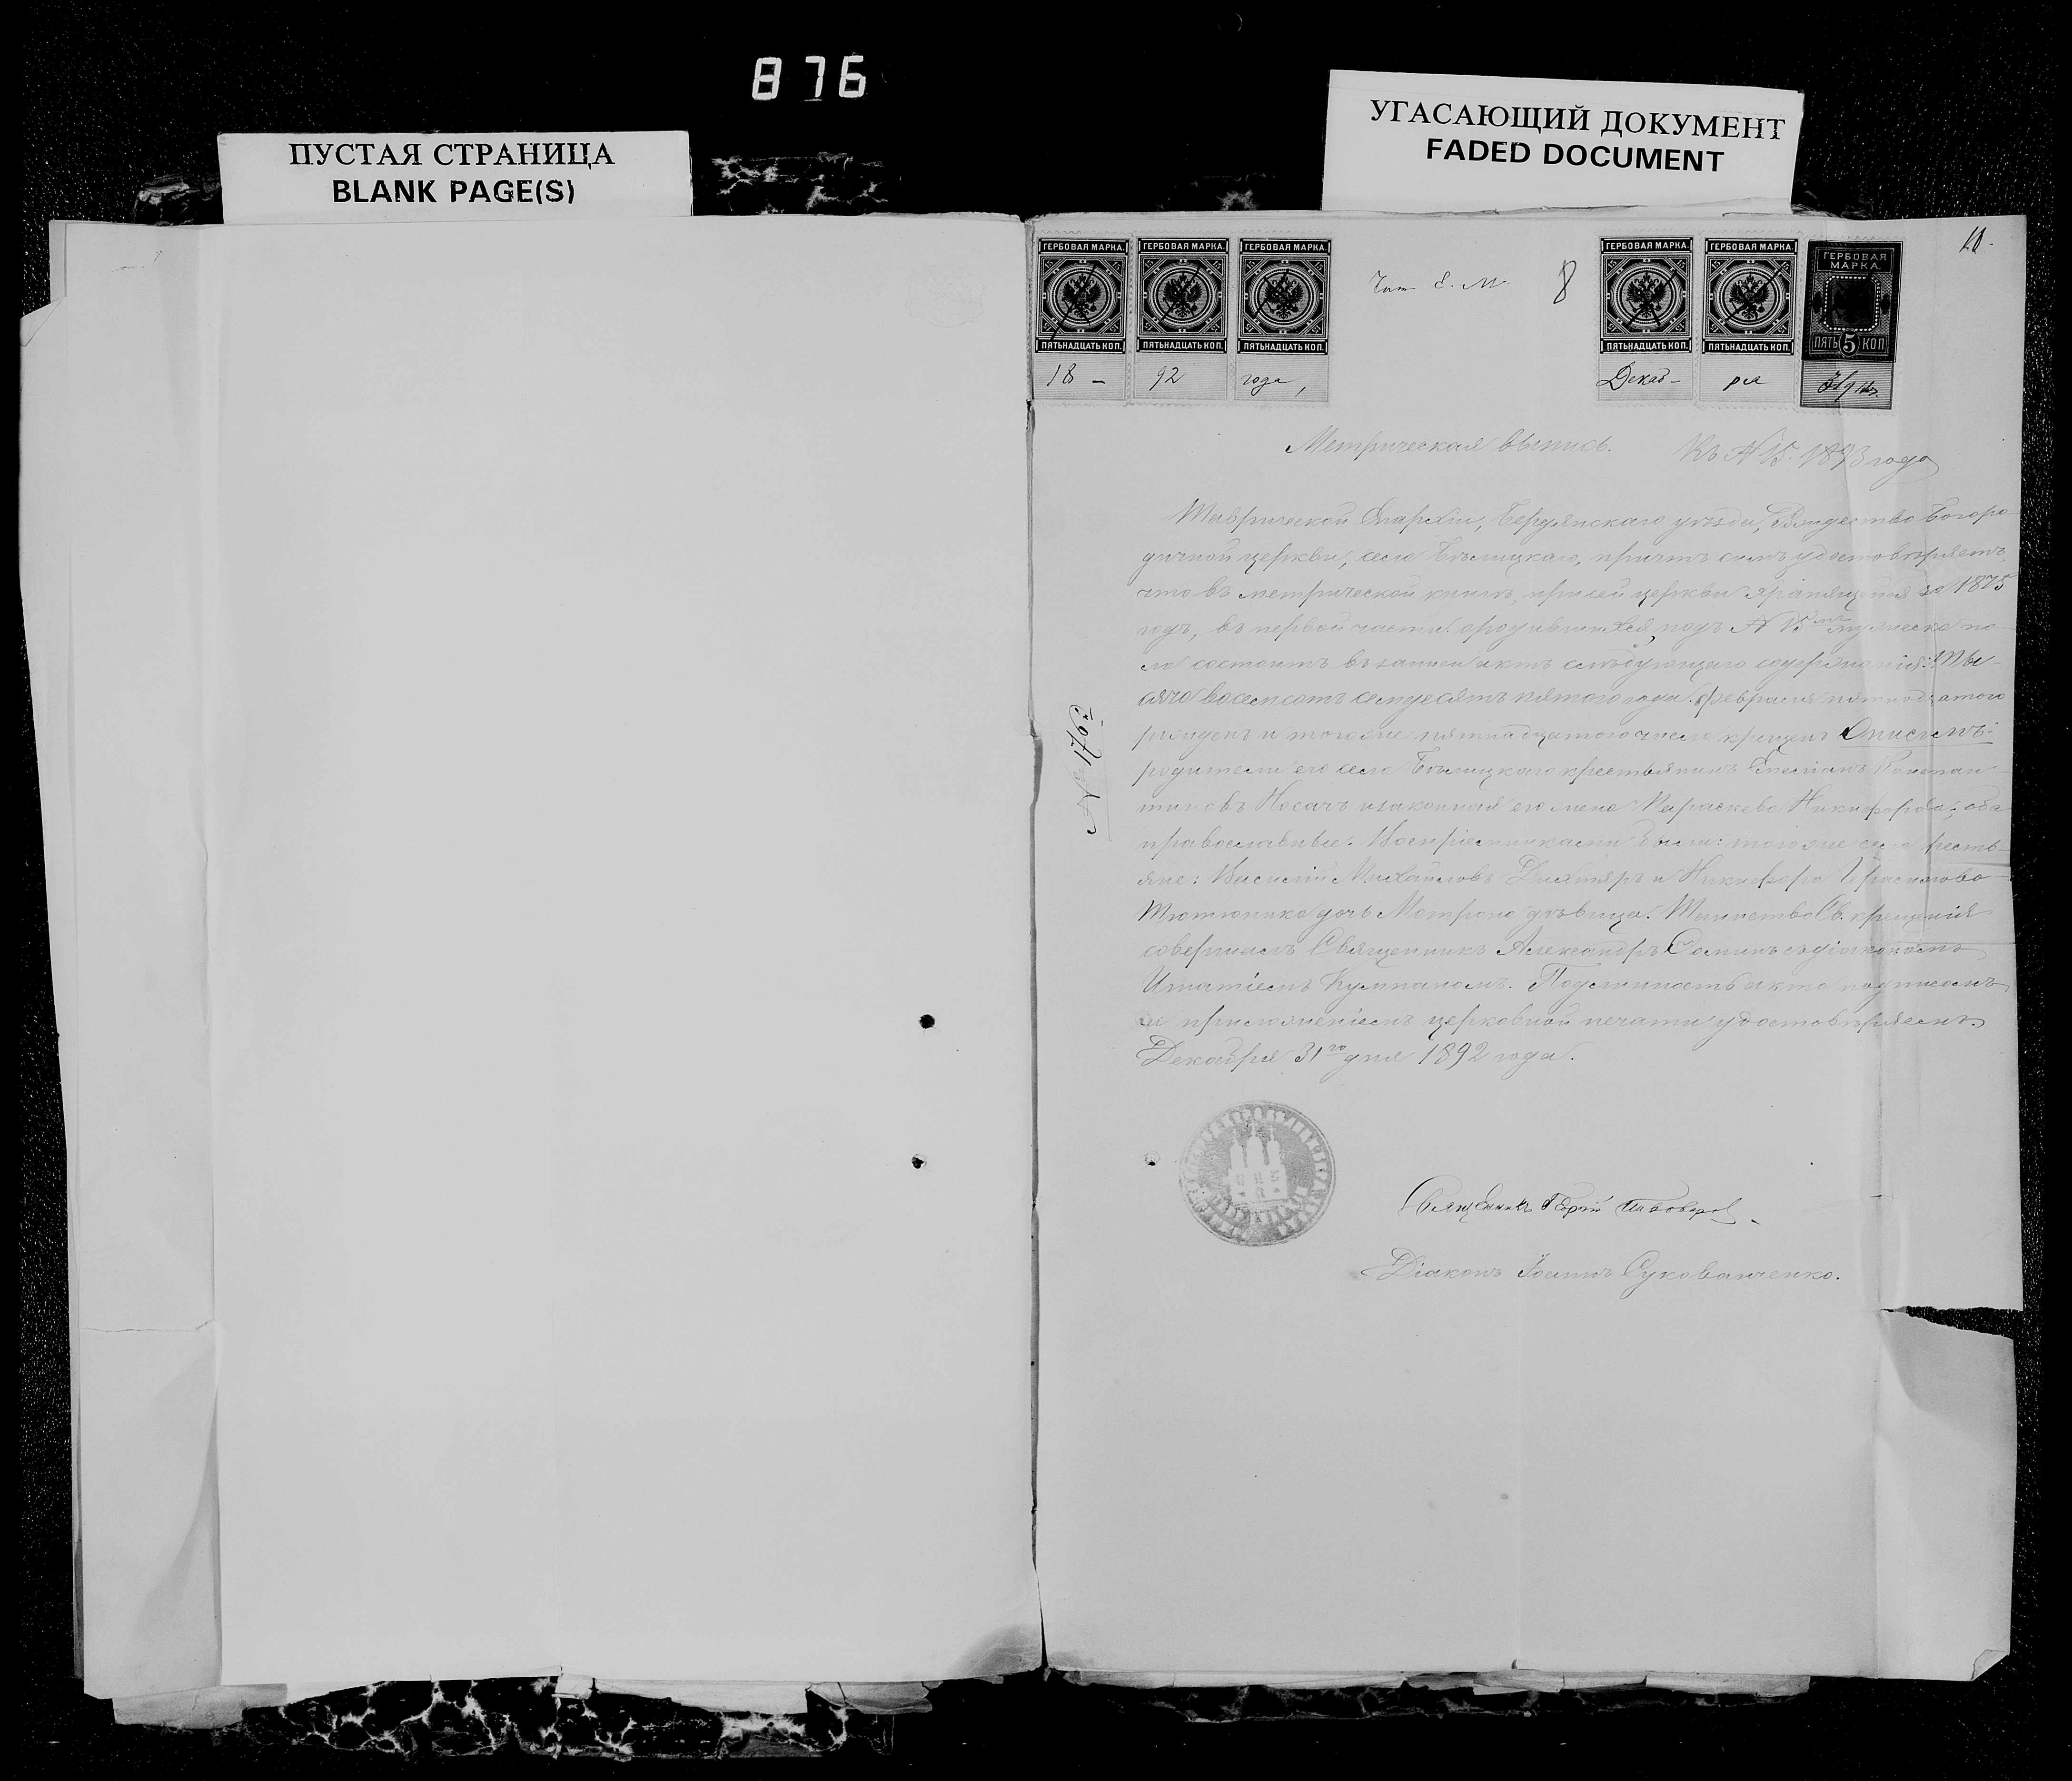 876
ПУСТАЯ СТРАНИЦА
BLANK PAGE(S)
УГАСАЮЩИЙ ДОКУМЕНТ
FADED DOCUMENT
ГЕРБОВАЯ МАРКА. ГЕРБОВАЯ МАРКА. ГЕРБОВАЯ МАРКА.
ПЯТЬНАДЦАТЬ КОП. ПЯТЬНАДЦАТЬ КОП. ПЯТЬНАДЦАТЬ КОП.
18 - 92 года,
Е. М. 8
ГЕРБОВАЯ МАРКА. ГЕРБОВАЯ МАРКА. ГЕРБОВАЯ МАРКА.
ПЯТЬНАДЦАТЬ КОП. ПЯТЬНАДЦАТЬ КОП. ПЯТЬ 5 КОП
Декаб- ря
Метрическая выпись. Къ № 15. 1893 года
Таврической Епархіи, Бердянскаго уѣзда, Рождество Богоро-
дичной церкви, села Бѣлицкаго, причтъ симъ удостовѣряетъ,
что въ метрической книгѣ, при сей церкви хранящейся за 1875
годъ, въ первой части о родившихся, подъ № 15 мъ мужеска по-
ла состоитъ въ записи актъ слѣдующаго содержанія: Ты-
сяча восемсотъ семдесятъ пятого года Февраля пятнадцатого
рожденъ и тогоже пятнадцатого числа крещенъ Онисимъ:
родители его села Бѣлицкаго крестьянинъ Констан-
тиновъ Носачъ и законная его жена Параскева Никифорова; оба
православные. Воспріемниками были: тогоже села кресть-
яне: Василій Михайловъ Дихтяръ и Никифора Герасимова
Тютюника дочь Матрона дѣвица. Таинство Св. крещенія
совершалъ Священникъ Александръ Соминъ съ діакономъ
Игнатіемъ Кумпаномъ. Подлинность акта подписомъ
и приложеніемъ церковной печати удостовѣряемъ.
Декабря 31го дня 1892 года.
№ 176й
Священникъ Георгій Пивоваров
Діаконъ Іоаннъ Сукованченко.